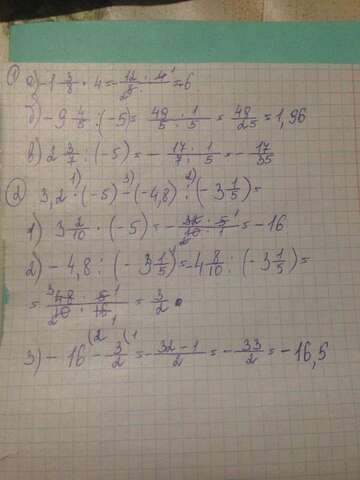 1) а) -1 3/8 · 4 = -12/8 · 4/1 = -6
б) -9 4/5 : (-5) = 49/5 · 1/5 = 49/25 = 1,96
в) 2 3/7 : (-5) = -17/7 · 1/5 = -17/35
2) 3,2 · (-5) - (-4,8) : (-3 1/5) =
1) 3 2/10 · (-5) = -32/10 · 5/1 = -16
2) -4,8 : (-3 1/5) = -4 8/10 : (-3 1/5) =
= 48/10 · 5/16 = 3/2
3) -16 - 3/2 = -32-1/2 = -33/2 = -16,5